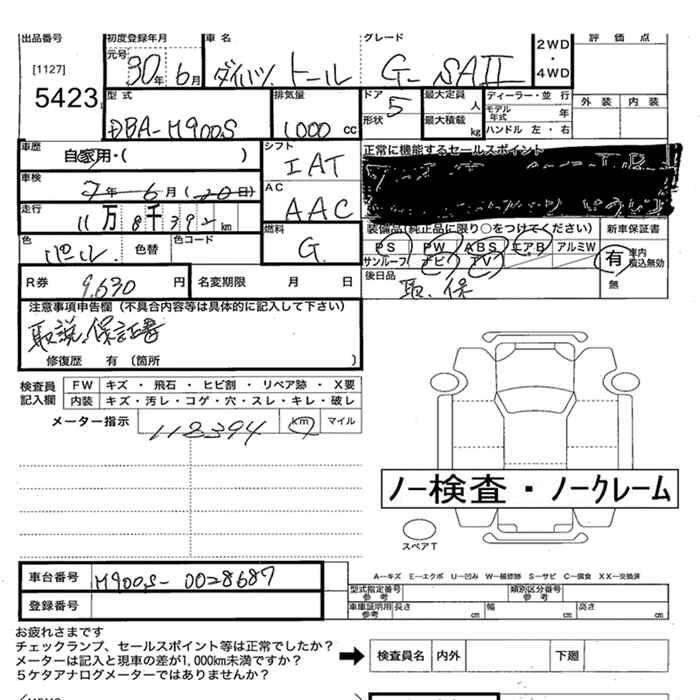 出品番号 初度登録年月 車名 グレード 2WD・4WD 評価点
[1127] 元号 30年 6月 ダイハツ トール G SAII
5423 型式 排気量 ドア 5 最大定員 人 ディーラー・並行 外装 内装
DBA-M900S 1000 cc 形状 最大積載 kg モデル年式 年
ハンドル 左・右
車歴 自家用・( ) シフト IAT 正常に機能するセールスポイント
車検 7年 6月 (20日) AC AAC
走行 11万8千392km 装備品(純正品に限り○をつけてください) 新車保証書
色 パール 色替 色コード 燃料 G PS PW ABS エアB アルミW 有 車内積込無効
サンルーフ ナビ TV 無
R券 9,630 円 名変期限 月 日 後日品 取、保
注意事項申告欄(不具合内容等は具体的に記入して下さい)
取説、保証書
修復歴 有(箇所 )
検査員記入欄 FW キズ・飛石・ヒビ割・リペア跡・X要
内装 キズ・汚レ・コゲ・穴・スレ・キレ・破レ
メーター指示 118394 km マイル
ノー検査・ノークレーム
スペアT
車台番号 M900S-0028687 A-キズ E-エクボ U-凹み W-補修跡 S-サビ C-腐食 XX-交換済
型式指定番号 参考 類別区分番号 参考
登録番号 車庫証明用 参考 長さ cm 幅 cm 高さ cm
お疲れさまです
チェックランプ、セールスポイント等は正常でしたか?
メーターは記入と現車の差が1,000km未満ですか? 検査員名 内外 下廻
5ケタアナログメーターではありませんか?